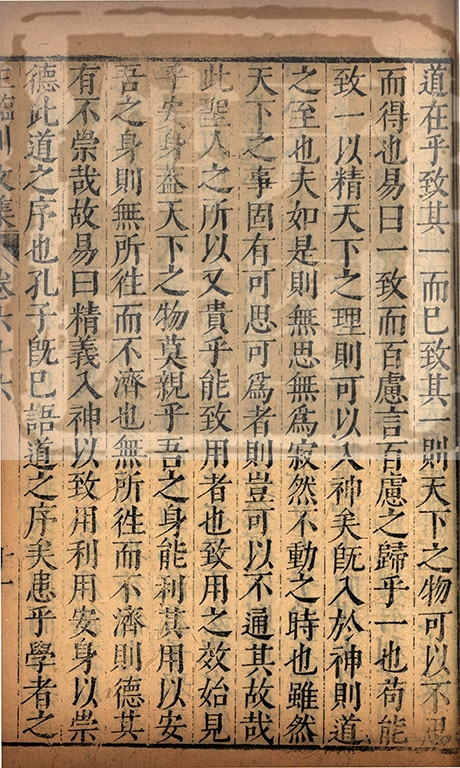 道在乎致其一而已致其一則天下之物可以不思
而得也易曰一致而百慮言百慮之歸乎一也苟能
致一以精天下之理則可以入神矣旣入於神則道
之至也夫如是則無思無爲寂然不動之時也雖然
天下之事固有可思可爲者則豈可以不通其故哉
此聖人之所以又貴乎能致用者也致用之效始見
乎安身蓋天下之物莫親乎吾之身能利其用以安
吾之身則無所徃而不濟也無所徃而不濟則德其
有不崇哉故易曰精義入神以致用利用安身以崇
德此道之序也孔子旣已語道之序矣患乎學者之
王臨川文集 卷六十六 十一